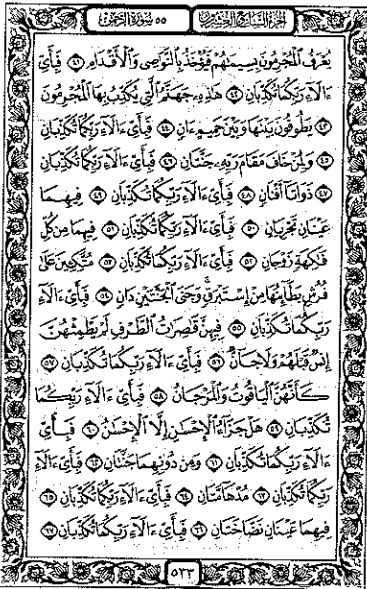 الجزء السابع والعشرون ٥٥ سورة الرحمن
يُعْرَفُ ٱلْمُجْرِمُونَ بِسِيمَٰهُمْ فَيُؤْخَذُ بِٱلنَّوَٰصِى وَٱلْأَقْدَامِ ٤١ فَبِأَىِّ
ءَالَآءِ رَبِّكُمَا تُكَذِّبَانِ ٤٢ هَٰذِهِۦ جَهَنَّمُ ٱلَّتِى يُكَذِّبُ بِهَا ٱلْمُجْرِمُونَ
٤٣ يَطُوفُونَ بَيْنَهَا وَبَيْنَ حَمِيمٍ ءَانٍ ٤٤ فَبِأَىِّ ءَالَآءِ رَبِّكُمَا تُكَذِّبَانِ
٤٥ وَلِمَنْ خَافَ مَقَامَ رَبِّهِۦ جَنَّتَانِ ٤٦ فَبِأَىِّ ءَالَآءِ رَبِّكُمَا تُكَذِّبَانِ
٤٧ ذَوَاتَآ أَفْنَانٍ ٤٨ فَبِأَىِّ ءَالَآءِ رَبِّكُمَا تُكَذِّبَانِ ٤٩ فِيهِمَا
عَيْنَانِ تَجْرِيَانِ ٥٠ فَبِأَىِّ ءَالَآءِ رَبِّكُمَا تُكَذِّبَانِ ٥١ فِيهِمَا مِن كُلِّ
فَٰكِهَةٍ زَوْجَانِ ٥٢ فَبِأَىِّ ءَالَآءِ رَبِّكُمَا تُكَذِّبَانِ ٥٣ مُتَّكِـِٔينَ عَلَىٰ
فُرُشٍۭ بَطَآئِنُهَا مِنْ إِسْتَبْرَقٍ ۚ وَجَنَى ٱلْجَنَّتَيْنِ دَانٍ ٥٤ فَبِأَىِّ ءَالَآءِ
رَبِّكُمَا تُكَذِّبَانِ ٥٥ فِيهِنَّ قَٰصِرَٰتُ ٱلطَّرْفِ لَمْ يَطْمِثْهُنَّ
إِنسٌ قَبْلَهُمْ وَلَا جَآنٌّ ٥٦ فَبِأَىِّ ءَالَآءِ رَبِّكُمَا تُكَذِّبَانِ ٥٧
كَأَنَّهُنَّ ٱلْيَاقُوتُ وَٱلْمَرْجَانُ ٥٨ فَبِأَىِّ ءَالَآءِ رَبِّكُمَا
تُكَذِّبَانِ ٥٩ هَلْ جَزَآءُ ٱلْإِحْسَٰنِ إِلَّا ٱلْإِحْسَٰنُ ٦٠ فَبِأَىِّ
ءَالَآءِ رَبِّكُمَا تُكَذِّبَانِ ٦١ وَمِن دُونِهِمَا جَنَّتَانِ ٦٢ فَبِأَىِّ ءَالَآءِ
رَبِّكُمَا تُكَذِّبَانِ ٦٣ مُدْهَآمَّتَانِ ٦٤ فَبِأَىِّ ءَالَآءِ رَبِّكُمَا تُكَذِّبَانِ ٦٥
فِيهِمَا عَيْنَانِ نَضَّاخَتَانِ ٦٦ فَبِأَىِّ ءَالَآءِ رَبِّكُمَا تُكَذِّبَانِ ٦٧
٥٣٣